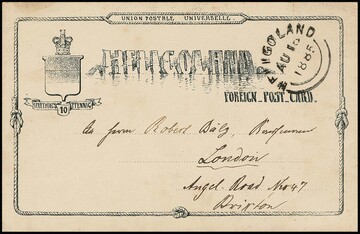 UNION POSTALE UNIVERSELLE.
HELIGOLAND
HELIGOLAND
AU
1885
FARTHING PFENNIG
10
FOREIGN POST CARD.
An Herrn Robert
London
Angel Road No 47
Brixton